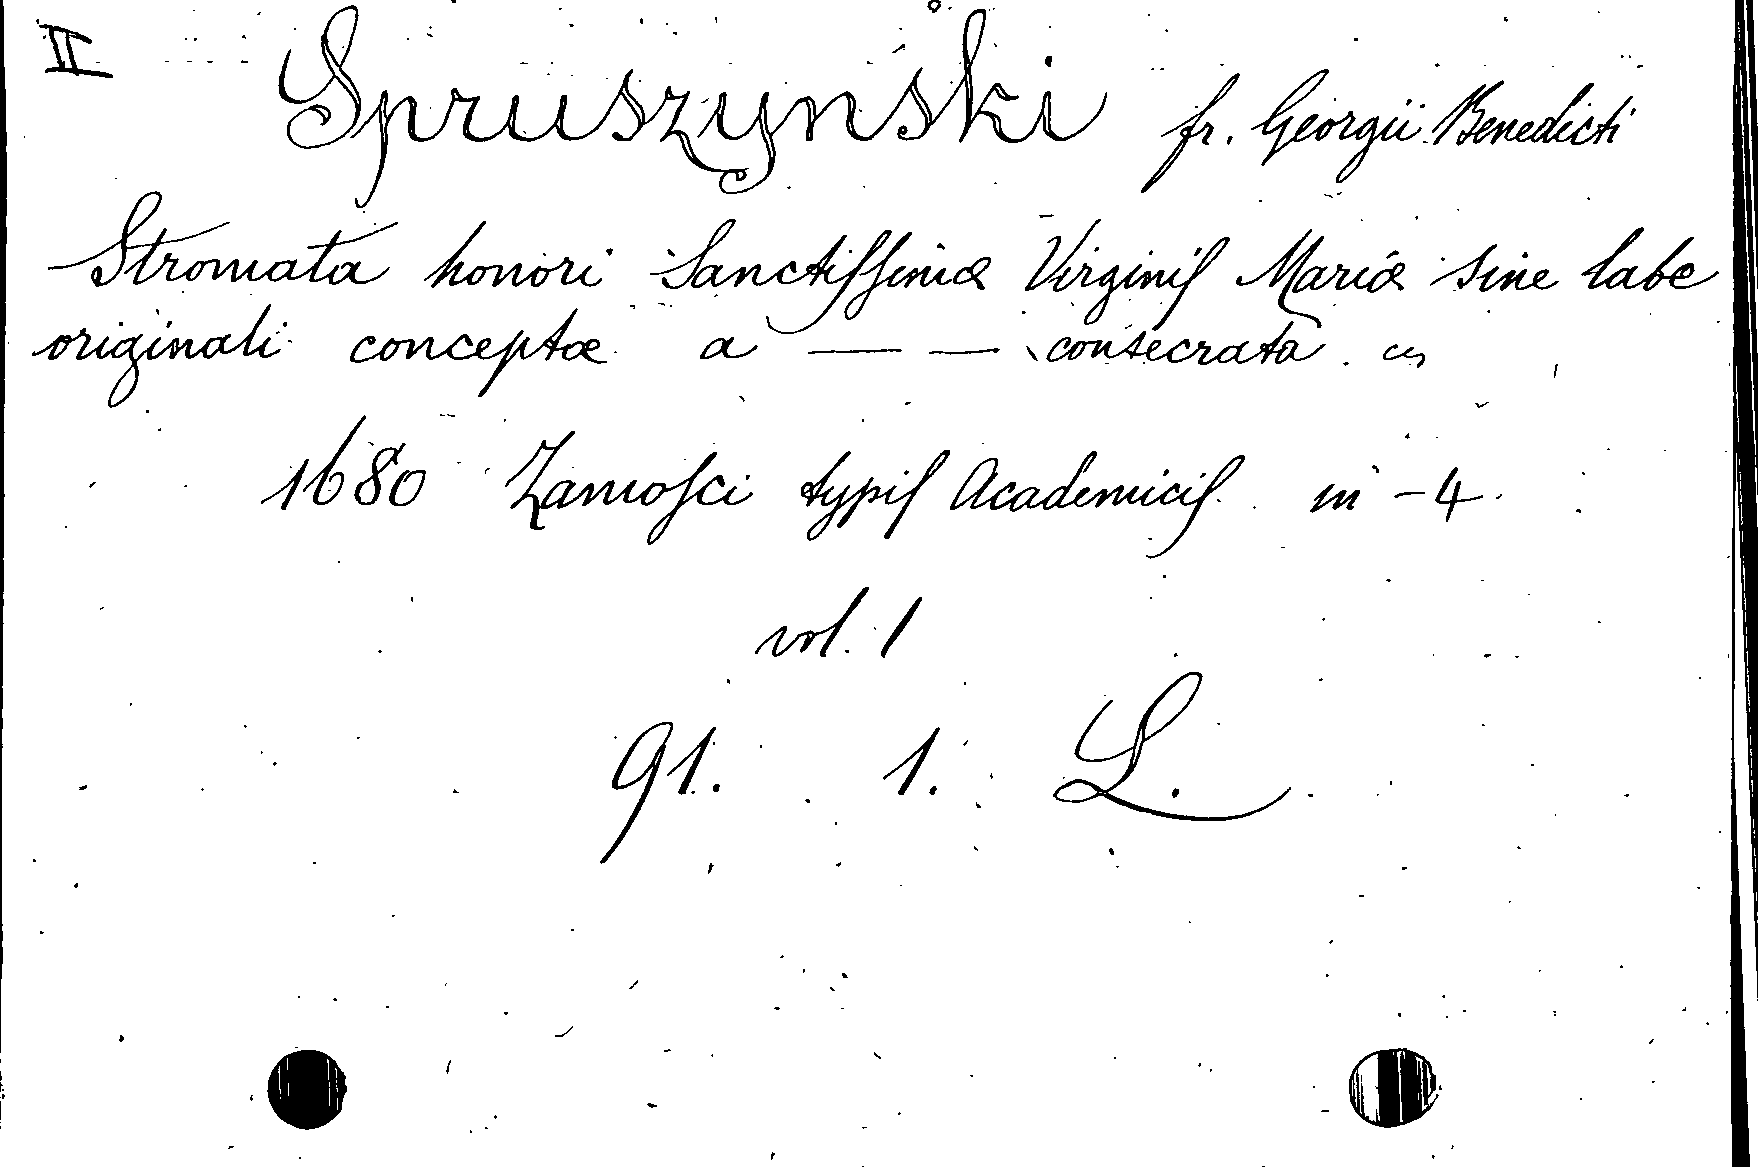 II Spruszynski fr. Georgii Benedicti
Stromata honori Sanctiſſimæ Virginiſ Mariæ sine labe
originali conceptæ a — — consecrata.
1680 Zamoſci typiſ Academiciſ in -4.
vol. 1
91. 1. L.